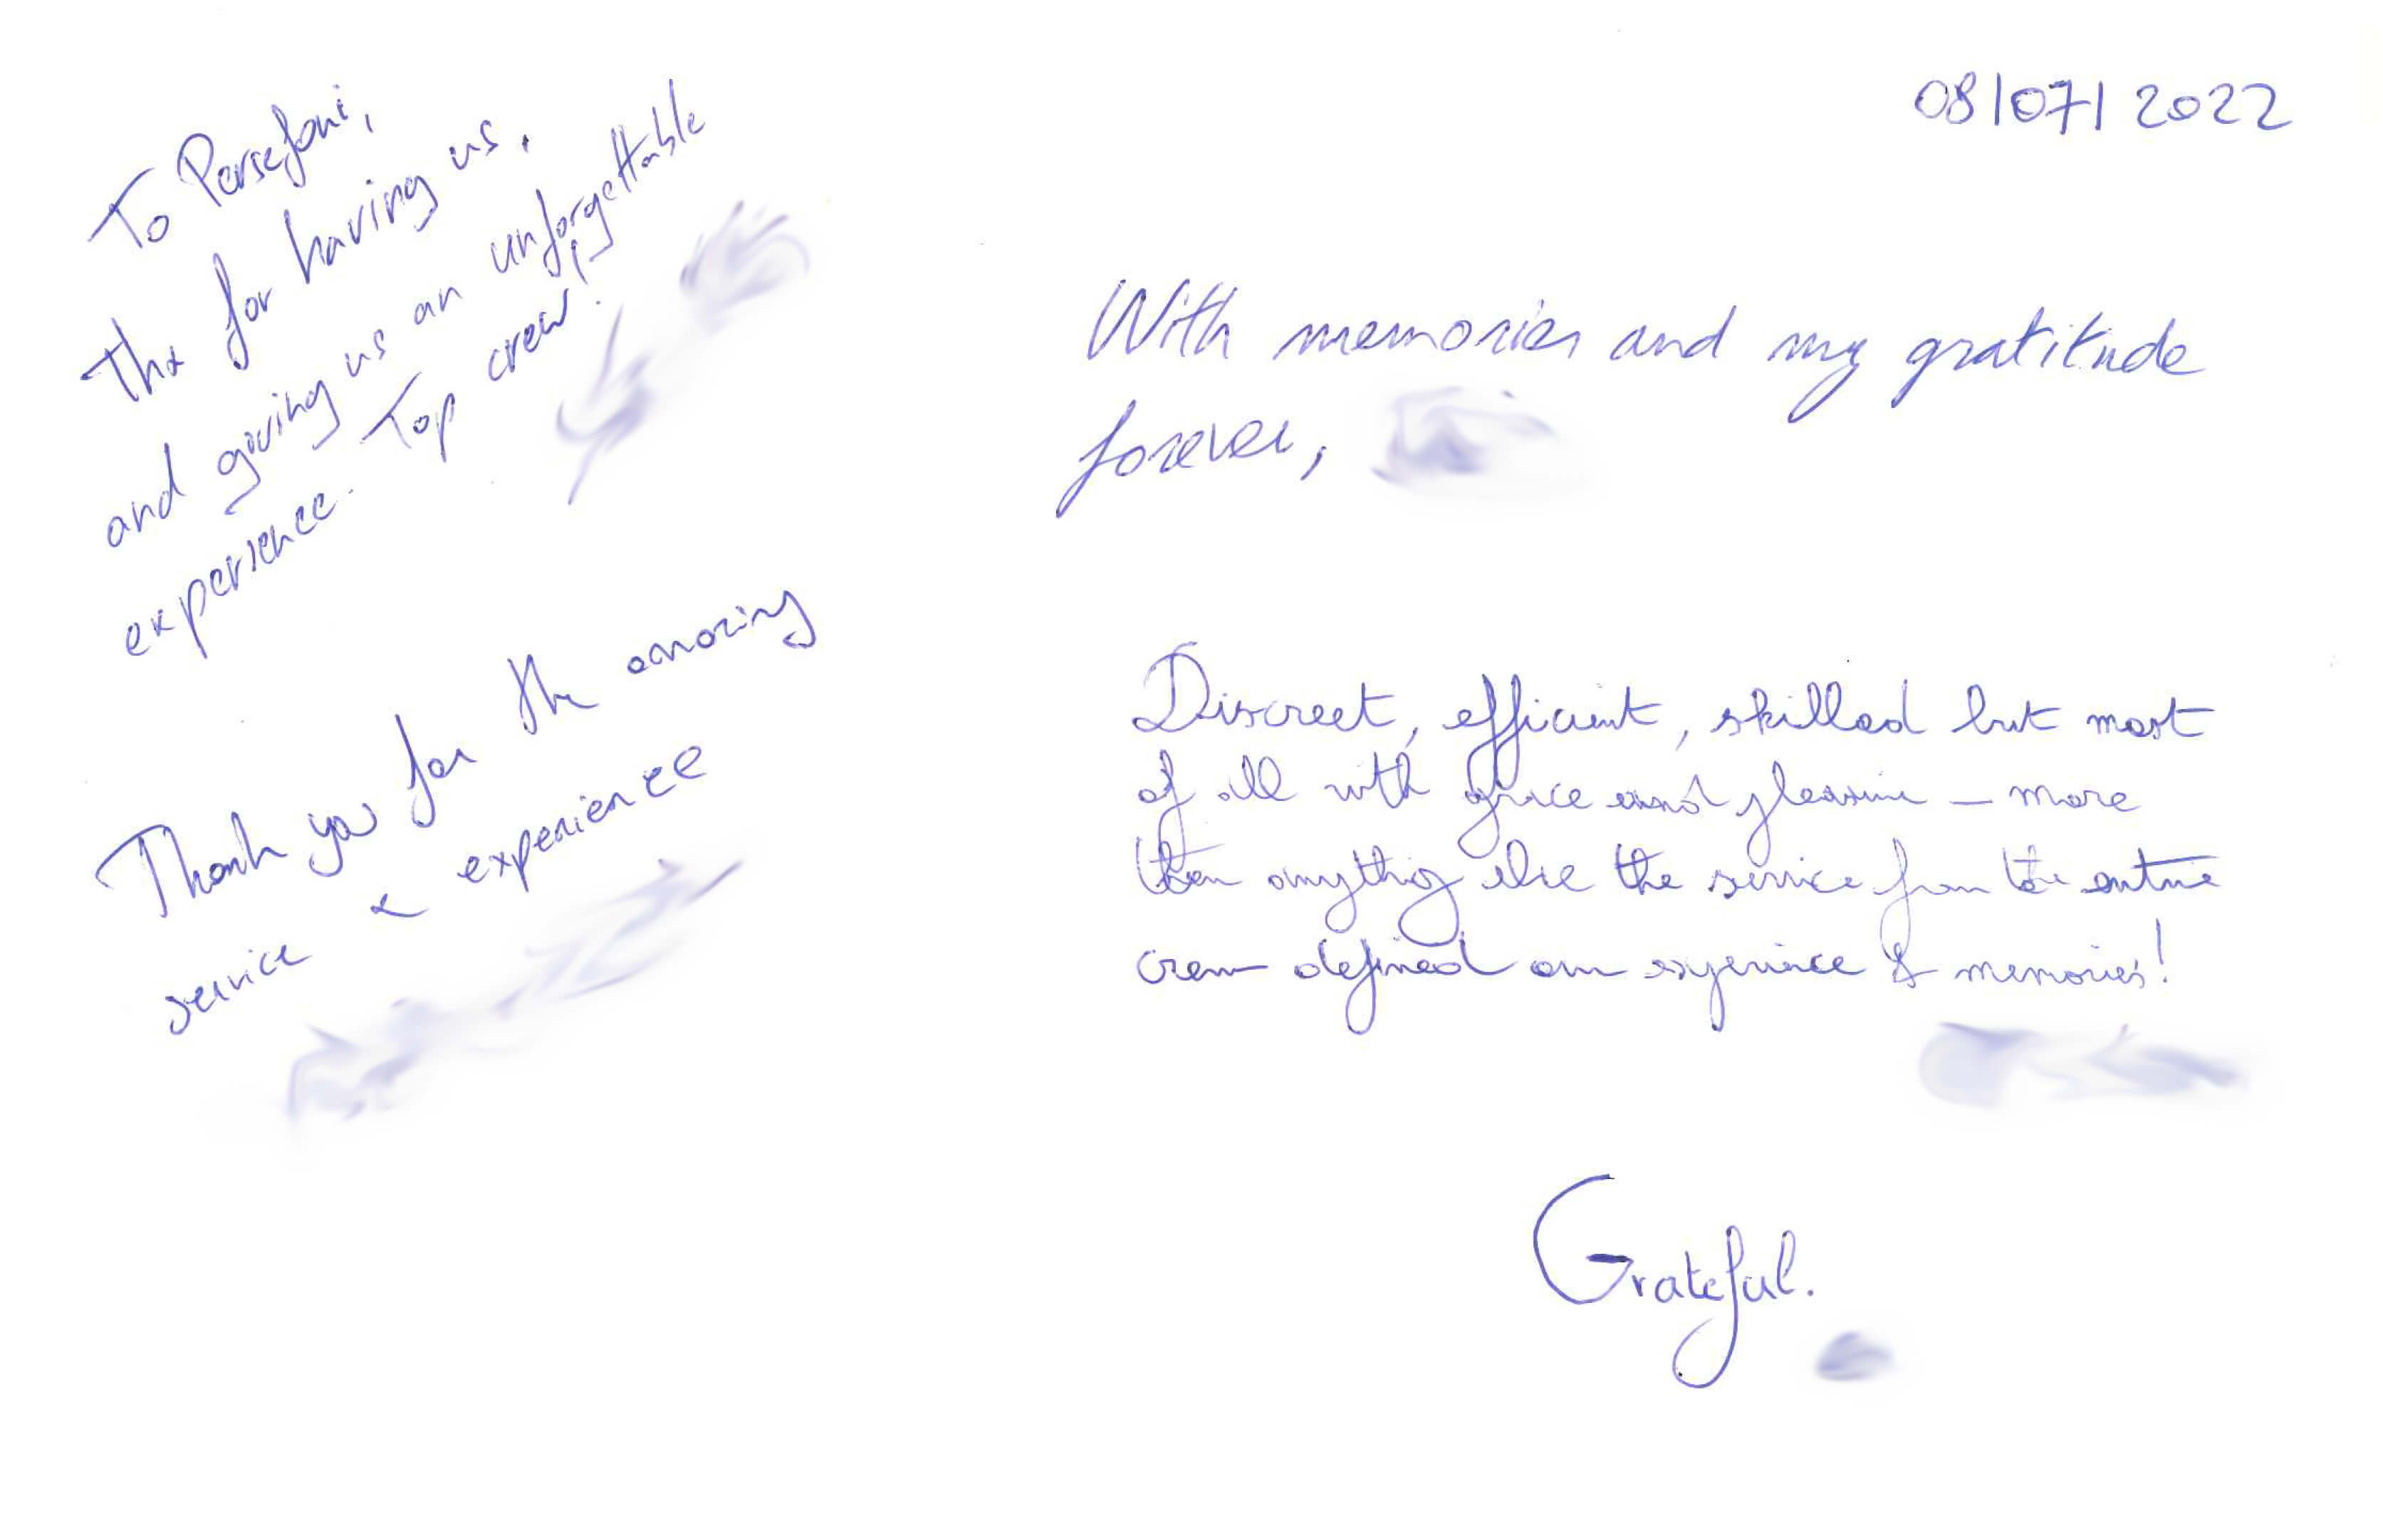 08/07/2022
To Persefoni,
Thx for having us,
and giving us an unforgettable
experience. Top crew!
Thank you for the amazing
service & experience
With memories and my gratitude
forever,
Discreet, efficient, skilled but most
of all with grace and pleasure – more
then anything else the service from the entire
crew defined our experience & memories!
Grateful.